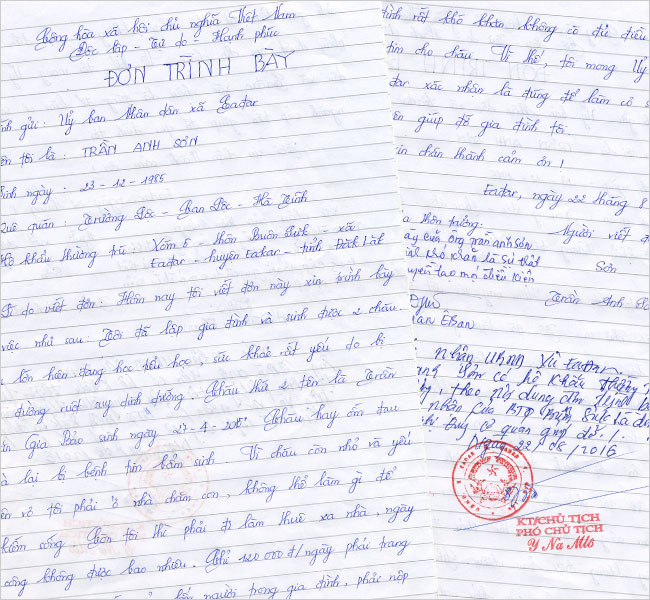 Cộng hòa xã hội chủ nghĩa Việt Nam
Độc lập - Tự do - Hạnh phúc
ĐƠN TRÌNH BÀY
nh gửi: Uỷ ban nhân dân xã Eađar
ên tôi là: TRẦN ANH SƠN
inh ngày: 23-12-1985
Quê quán: Trường Lộc - Can Lộc - Hà Tĩnh
Hộ khẩu thường trú: Xóm 5 - thôn Buôn - xã
Eađar - huyện Eakar - tỉnh Đăk Lăk
Lí do viết đơn: Hôm nay tôi viết đơn này xin trình bày
việc như sau: Tôi đã lập gia đình và sinh được 2 cháu.
lớn hiện đang học tiểu học, sức khoẻ rất yếu do bị
đường ruột suy dinh dưỡng. Cháu thứ 2 tên là Trần
Gia Bảo sinh ngày 27-4-2015. Cháu hay ốm đau
à lại bị bệnh tim bẩm sinh. Vì cháu còn nhỏ và yếu
ên vợ tôi phải ở nhà chăm con, không thể làm gì để
kiếm sống. Còn tôi thì phải đi làm thuê xa nhà, ngày
công không được bao nhiêu. Chỉ 120 000 đ/ngày phải trang
người trong gia đình, phải nộp
đình rất khó khăn không có đủ điều
tim cho cháu. Vì thế, tôi mong Uỷ
đar xác nhận là đúng để làm cơ s
ên giúp đỡ gia đình tôi
in chân thành cảm ơn!
Eađar, ngày 22 tháng 8
a thôn trưởng: Người viết đ
ày của ông trần anh sơn
khó khăn là sự thật Sơn
tạo mọi điều kiện
Trần Anh S
Êban
nhận UBND xã Eađar
có hộ khẩu thường
, theo nội dung đơn trình b
nhận của BTQ
cơ quan giúp đỡ!
Ngày 22/08/2016
KT/CHỦ TỊCH
PHÓ CHỦ TỊCH
Y Na Mlô